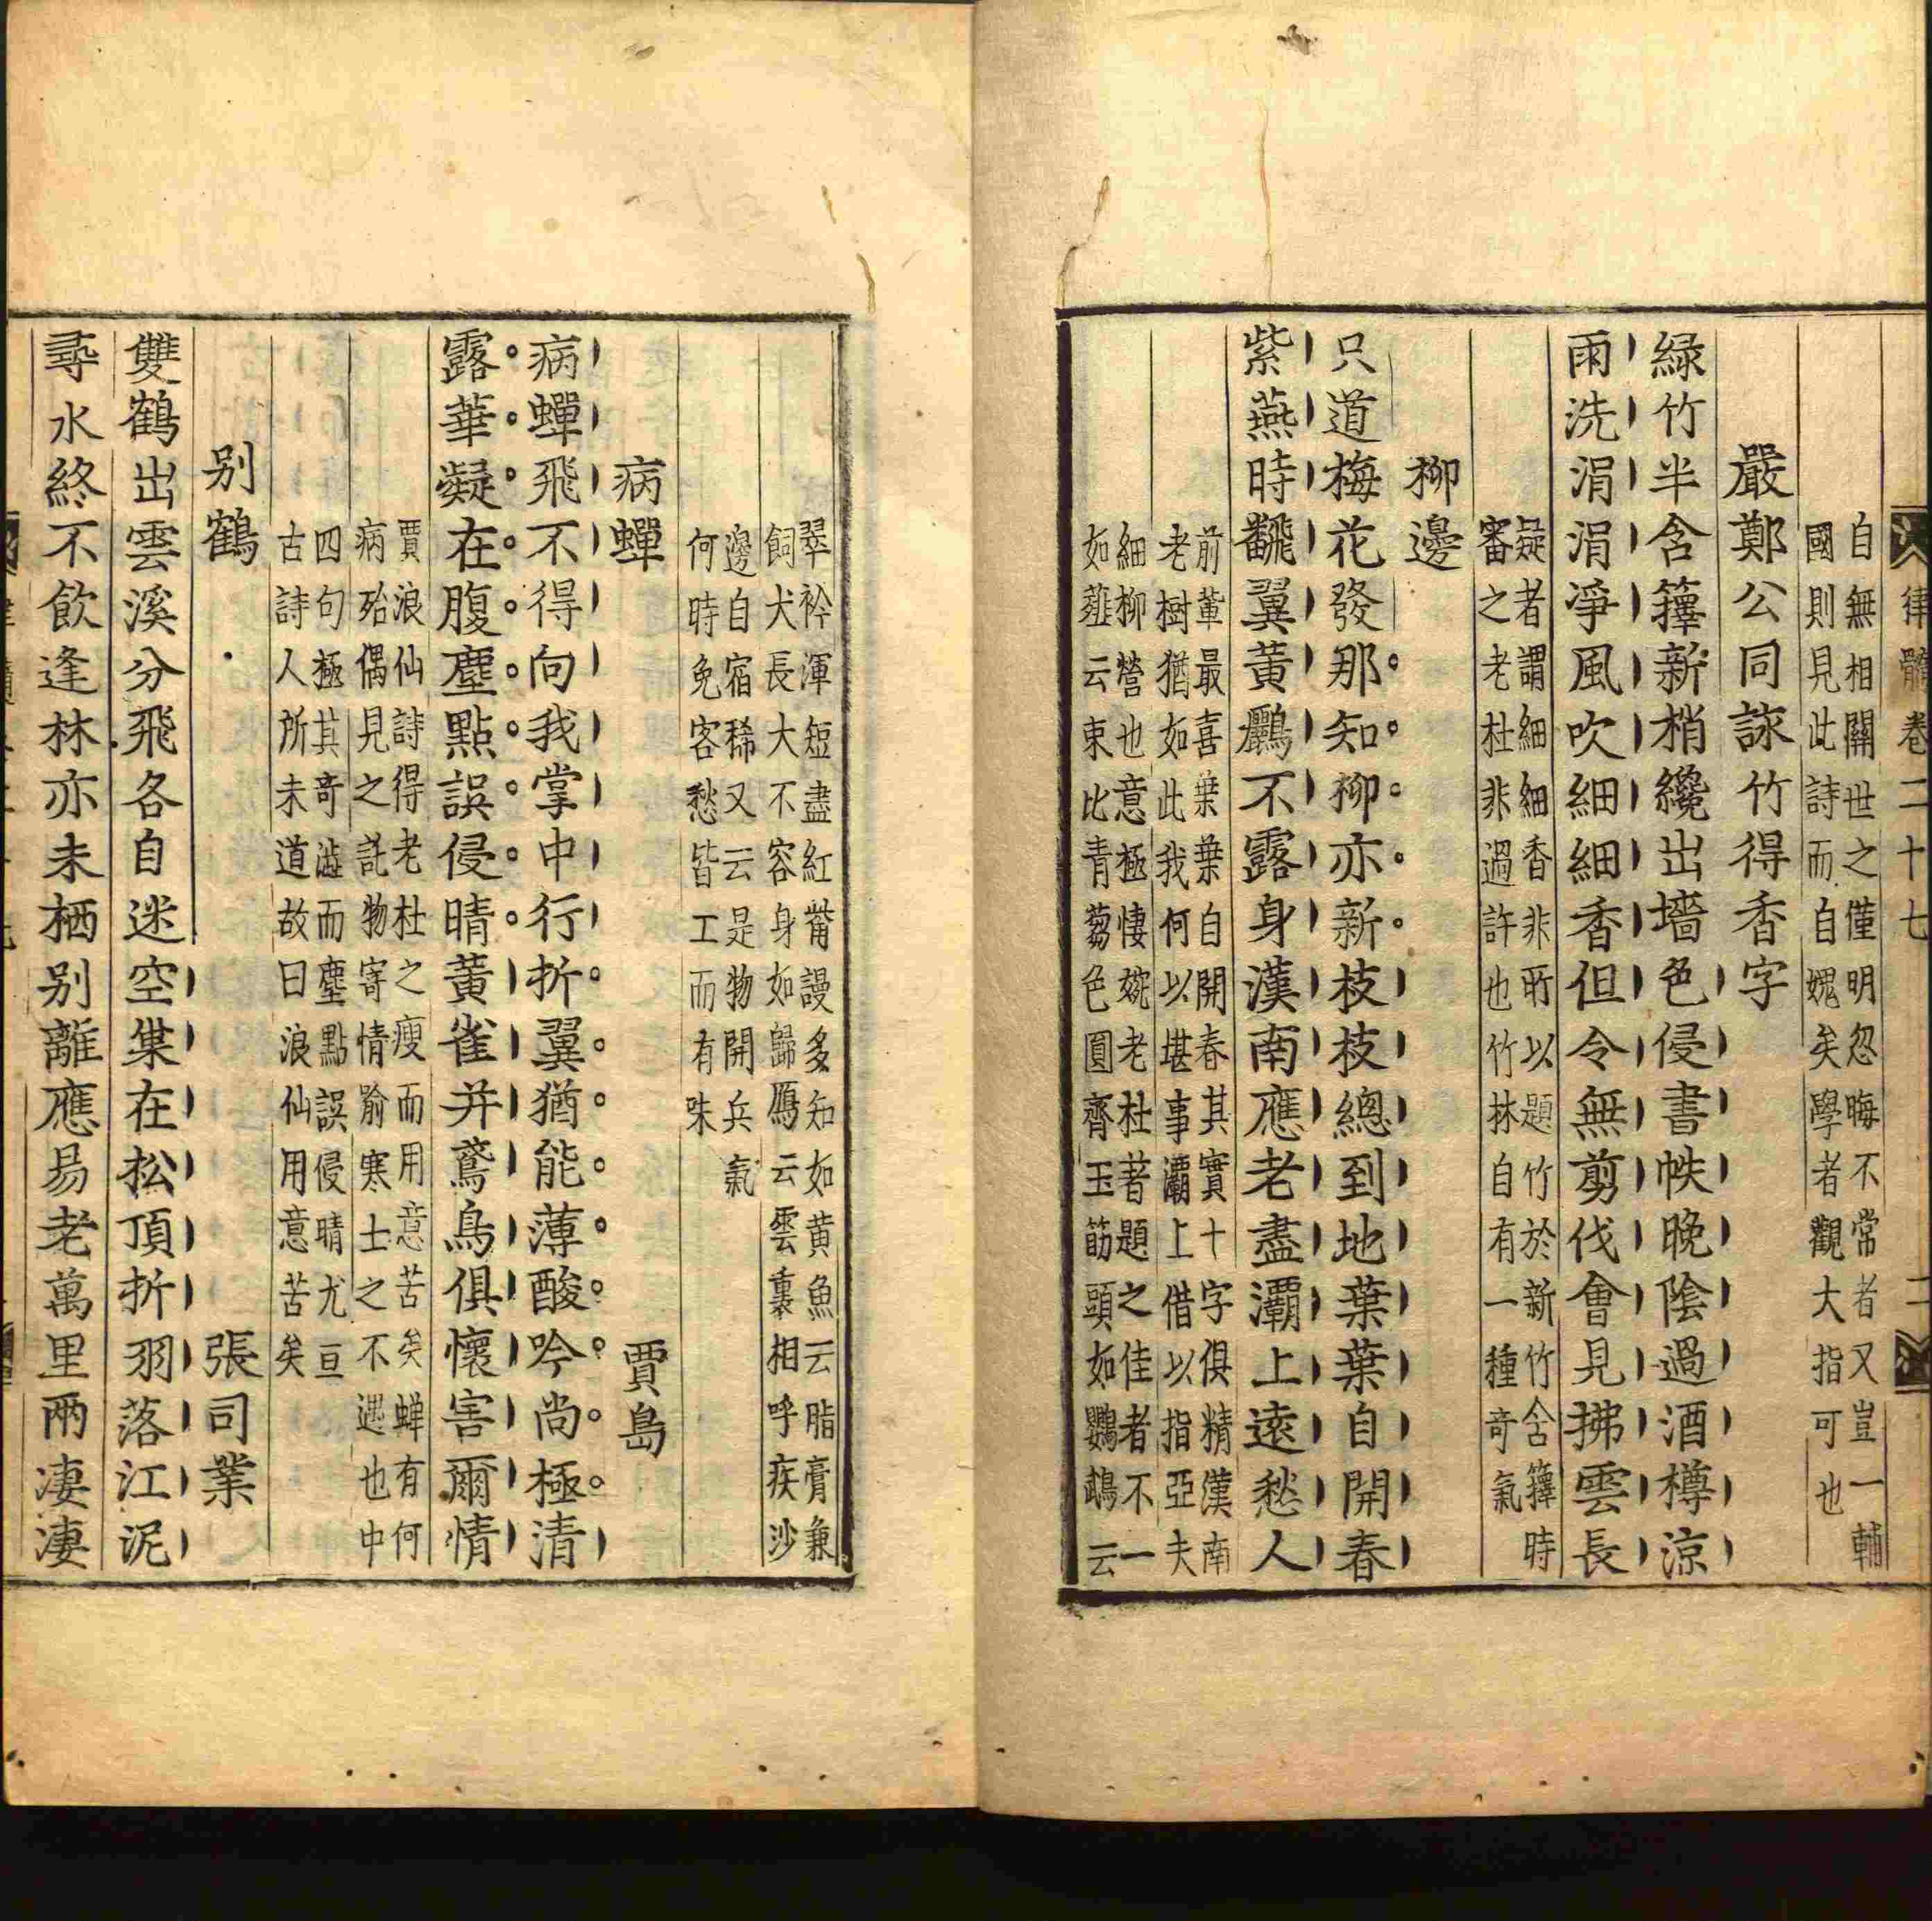 律髓卷二十七
自無相關世之僅明忽晦不常者又豈一輔
國則見此詩而自媿矣學者觀大指可也
嚴鄭公同詠竹得香字
緑竹半含籜新梢纔出墻色侵書帙晚陰過酒樽涼
雨洗涓涓凈風吹細細香但令無剪伐會見拂雲長
疑者謂細細香非所以題竹於新竹含籜時
審之老杜非過許也竹林自有一種奇氣
柳邊
只道梅花發那知柳亦新枝枝總到地葉葉自開春
紫燕時飜翼黃鸝不露身漢南應老盡灞上遠愁人
前輩最喜葉葉自開春其實十字俱精漢南
老樹猶如此我何以堪事灞上借以指亞夫
細柳營也意極悽婉老杜著題之佳者不一
如薤云束比青蒭色圓齊玉筯頭如鸚鵡云
翠衿渾短盡紅觜謾多知如黄魚云脂膏兼
飼犬長大不容身如歸鴈云雲裏相呼疾沙
邊自宿稀又云是物開兵氣
何時免客愁皆工而有味
病蟬 賈島
病蟬飛不得向我掌中行折翼猶能薄酸吟尚極清
露華凝在腹塵點誤侵晴黃雀并鳶鳥俱懷害爾情
賈浪仙詩得老杜之瘦而用意苦矣蟬有何
病殆偶見之託物寄情喻寒士之不遇也中
四句極其奇澁而塵點誤侵晴尤亘
古詩人所未道故曰浪仙用意苦矣
別鶴 張司業
雙鶴出雲溪分飛各自迷空巢在松頂折羽落江泥
尋水終不飲逢林亦未栖別離應易老萬里兩淒淒